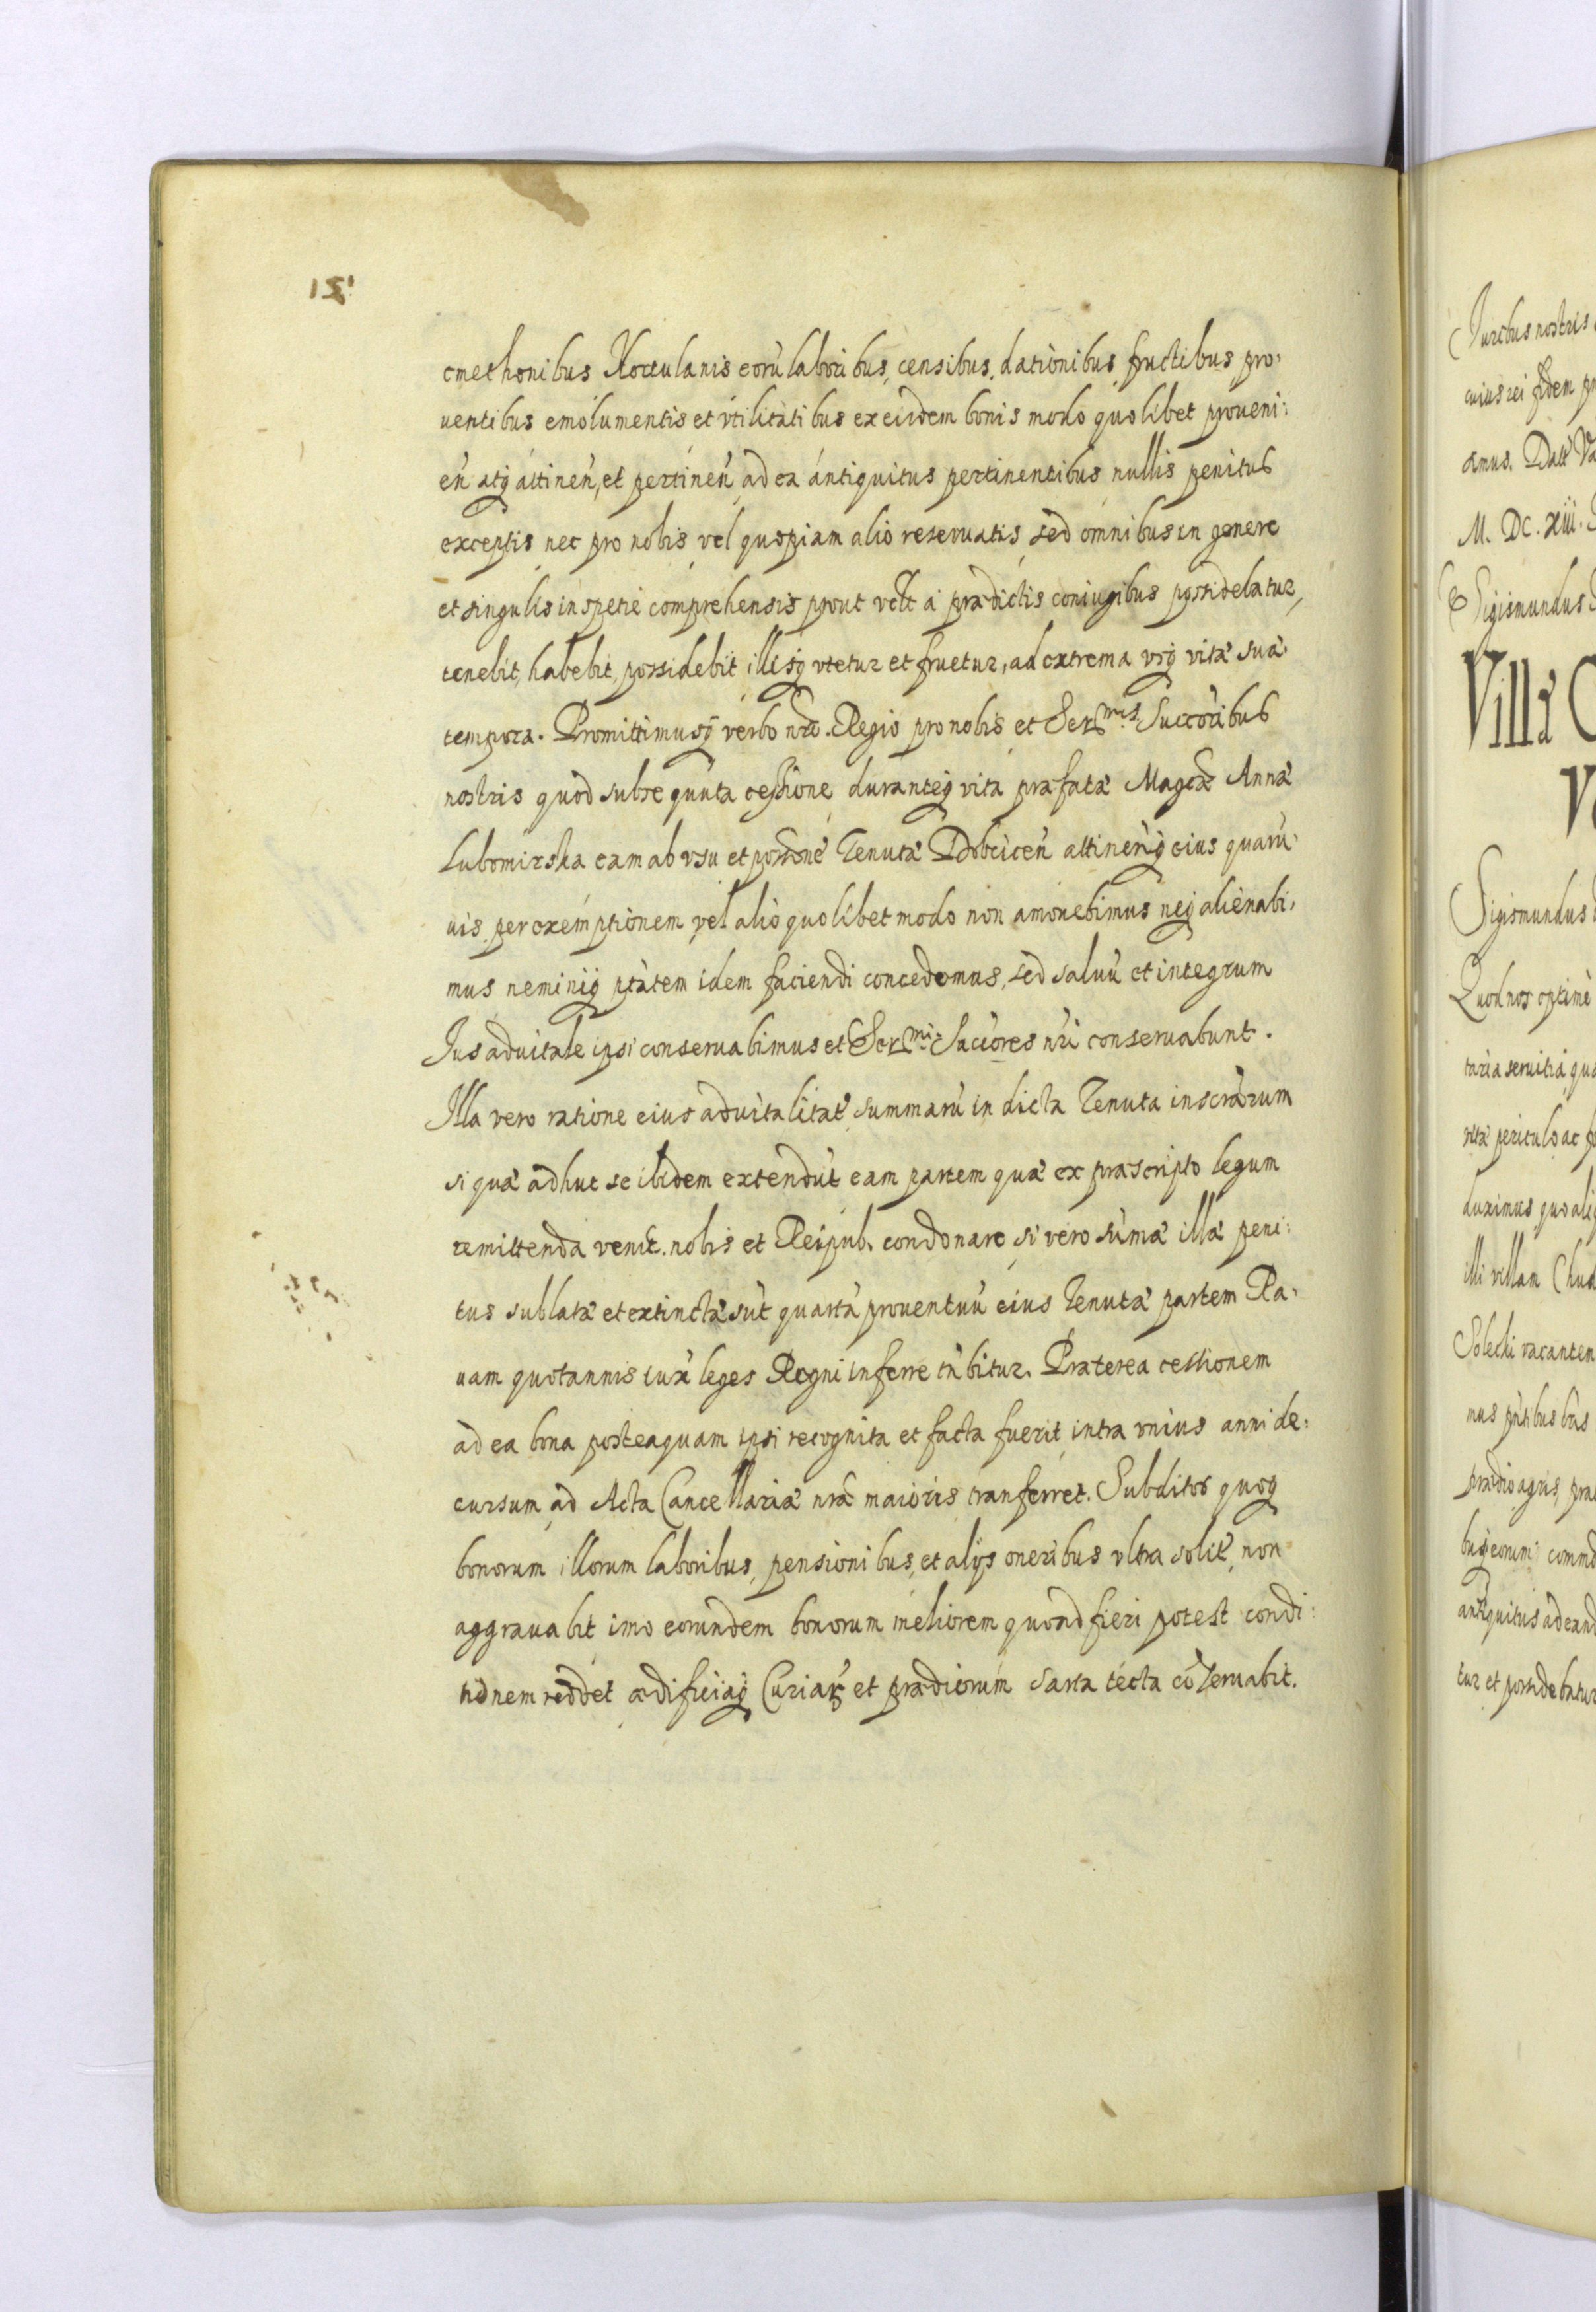 cmethonibus Hortulanis eorũ laboribus, censibus, dationibus fructibus, pro-
uentibus emolumentis et vtilitatibus ex eisdem bonis modo quolibet proueni:
eñ atq̃ attineñ, et pertineñ ad ea antiquitus pertinentibus nullis penitus
exceptis nec pro nobis vel quopiam alio reseruatis, sed omnibus in genere
et singulis in spetie comprehensis prout velt a prædictis coniugibus possidebatur,
tenebit, habebit, possidebit illisq̃ vtetur et fruetur, ad extrema vsq̃ vitæ suæ
tempora. Promittimusq̃ verbo nrõ. Regio pro nobis et Ser.mis Succoribus
nostris quod subsequuta cessione duranteq̃ vita præfatæ Magcæ Annæ
Lubomirska eam ab vsu et possonẽ Tenutæ Dobciceñ attineñq̃ eius quarũ-
uis per exemptionem vel alio quolibet modo non amouebimus neq̃ alienabi-
mus neminiq̃ ptatem idem faciendi concedemus, sed saluũ et integrum
Ius aduitale ipsi conseruabimus et Ser.mi Succores nri conseruabunt.
Illa vero ratione eius aduitalitat summarũ in dicta Tenuta inscrarum
si quæ adhuc se ibidem extendũt eam partem quæ ex præscripto legum
remittenda venit. nobis et Reipub. condonare, si vero sũmæ illæ peni:
tus sublatæ et extinctæ sũt quartã prouentuũ eius Tenutæ partem Ra-
uam quotannis iux leges Regni inferre tñbitur. Præterea cessionem
ad ea bona posteaquam ipsi recognita et facta fuerit, intra vnius anni de:
cursum ad Acta Cancellariæ nræ maioris tranferret. Subditos quoq̃
bonorum illorum laboribus, pensionibus, et alijs oneribus vltra solit non
aggrauabit imo eorundem bonorum meliorem quoad fieri potest condi:
tionem reddet ædificiaq̃ Curiar et prædiorum sarta tecta cõseruabit.
Iuribus nostris
cuius rei fidem
Datt
M. DC. XIII.
Sigismundus
Villa
Sigismundus
Quod nos optime
seruitia
periculo ac
duximus
illi villam
Solecki vacantem
prædio agris,
antiquitus ad
tur et possidebatur